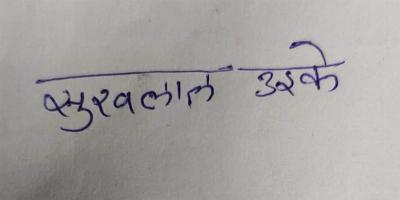 सुखलाल उइके